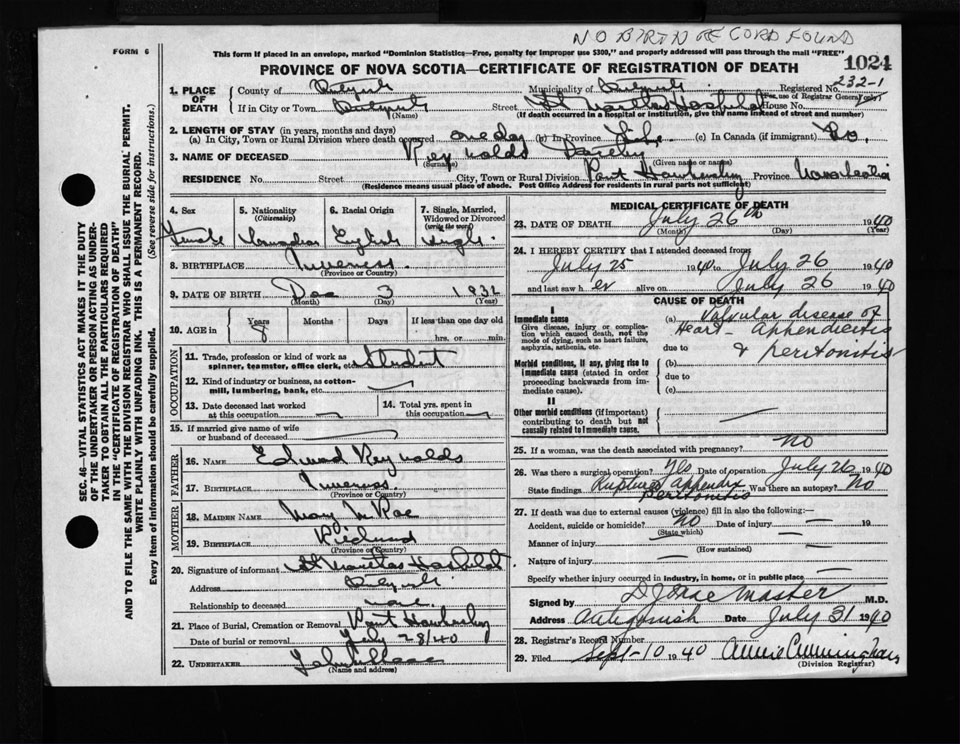 NO BIRTH RECORD FOUND
FORM 6
This form if placed in an envelope, marked "Dominion Statistics—Free, penalty for improper use $300," and properly addressed will pass through the mail "FREE"
1024
PROVINCE OF NOVA SCOTIA—CERTIFICATE OF REGISTRATION OF DEATH
232-1
1. PLACE OF DEATH
County of Antigonish Municipality of Antigonish Registered No.
(For use of Registrar General only)
If in City or Town Antigonish Street St Marthas Hospital House No.
(Name) (If death occurred in a hospital or institution, give the name instead of street and number)
2. LENGTH OF STAY (in years, months and days)
(a) In City, Town or Rural Division where death occurred one day (b) In Province Life (c) In Canada (if immigrant)
3. NAME OF DECEASED Reynolds
(Surname) (Given name or names)
RESIDENCE No. Street City, Town or Rural Division Port Hawkesbury Province Nova Scotia
(Residence means usual place of abode. Post Office Address for residents in rural parts not sufficient)
4. Sex
Female
5. Nationality
(Citizenship)
Canadian
6. Racial Origin
English
7. Single, Married, Widowed or Divorced
(write the word)
Single
8. BIRTHPLACE Inverness
(Province or Country)
9. DATE OF BIRTH Dec 3 1932
(Month) (Day) (Year)
10. AGE in
Years Months Days If less than one day old
8 hrs. or min.
OCCUPATION
11. Trade, profession or kind of work as spinner, teamster, office clerk, etc. Student
12. Kind of industry or business, as cotton-mill, lumbering, bank, etc.
13. Date deceased last worked at this occupation
14. Total yrs. spent in this occupation
15. If married give name of wife or husband of deceased
FATHER
16. NAME Edward Reynolds
17. BIRTHPLACE Inverness
(Province or Country)
MOTHER
18. MAIDEN NAME Mary McRae
19. BIRTHPLACE Richmond
(Province or Country)
20. Signature of informant St Marthas Hospital
Address Antigonish
Relationship to deceased none
21. Place of Burial, Cremation or Removal Port Hawkesbury
Date of burial or removal July 28/40
22. UNDERTAKER
(Name and address)
MEDICAL CERTIFICATE OF DEATH
23. DATE OF DEATH July 26th 1940
(Month) (Day) (Year)
24. I HEREBY CERTIFY that I attended deceased from
July 25 1940 to July 26 1940
and last saw her alive on July 26 1940
CAUSE OF DEATH
I
Immediate cause
Give disease, injury or complication which caused death, not the mode of dying, such as heart failure, asphyxia, asthenia, etc.
(a) Valvular disease of Heart Appendicitis
due to & peritonitis
Morbid conditions, if any, giving rise to immediate cause (stated in order proceeding backwards from immediate cause).
(b)
due to
(c)
II
Other morbid conditions (if important) contributing to death but not causally related to immediate cause.
25. If a woman, was the death associated with pregnancy? No
26. Was there a surgical operation? Yes Date of operation July 26 1940
State findings Ruptured appendix Peritonitis Was there an autopsy? No
27. If death was due to external causes (violence) fill in also the following:—
Accident, suicide or homicide? No Date of injury 19
(State which)
Manner of injury
(How sustained)
Nature of injury
Specify whether injury occurred in industry, in home, or in public place
Signed by D J MacMaster M.D.
Address Antigonish Date July 31 1940
28. Registrar's Record Number
29. Filed Sept-10 1940 Annie Cunningham
(Division Registrar)
SEC. 46—VITAL STATISTICS ACT MAKES IT THE DUTY OF THE UNDERTAKER OR PERSON ACTING AS UNDERTAKER TO OBTAIN ALL THE PARTICULARS REQUIRED IN THE "CERTIFICATE OF REGISTRATION OF DEATH" AND TO FILE THE SAME WITH THE DIVISION REGISTRAR WHO SHALL ISSUE THE BURIAL PERMIT.
WRITE PLAINLY WITH UNFADING INK. THIS IS A PERMANENT RECORD.
Every item of information should be carefully supplied. (See reverse side for instructions.)